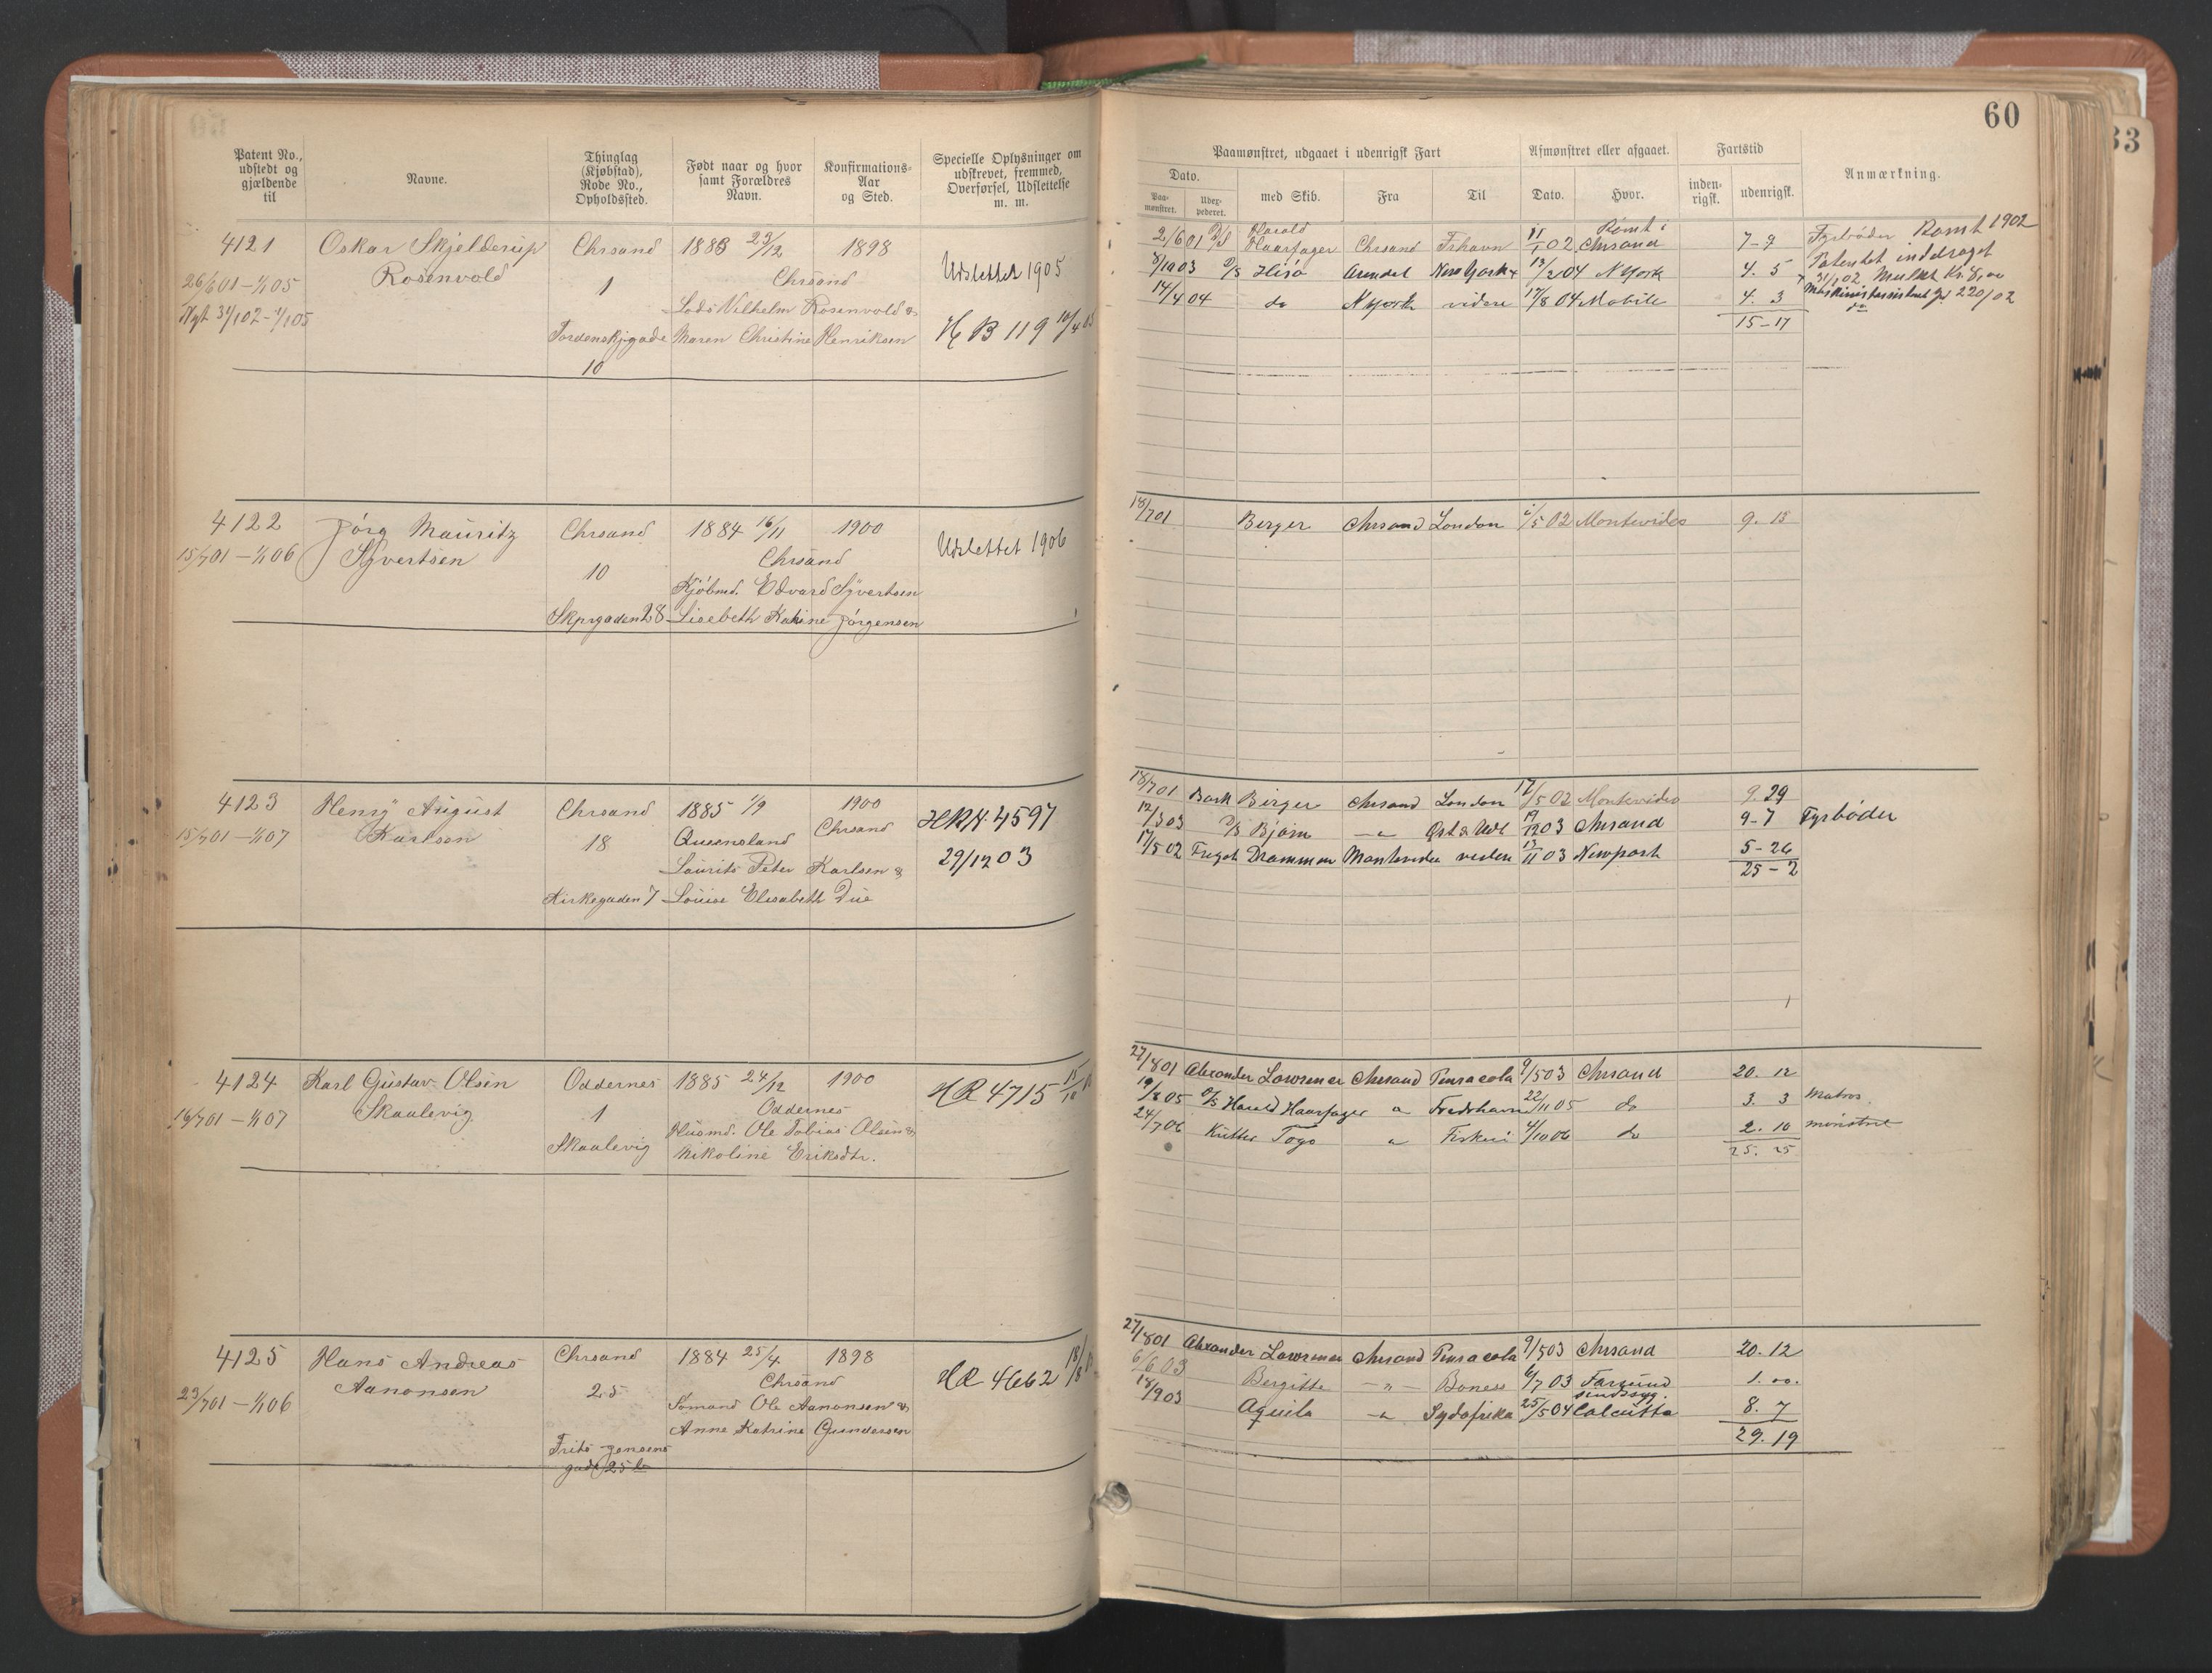 60
33
Patent No., udstedt og gjældende til
Navne.
Thinglag (Kjøbstad), Rode No., Opholdssted.
Født naar og hvor samt Forældres Navn.
Konfirmations-Aar og Sted.
Specielle Oplysninger om udskrevet, fremmed, Overførsel, Udslettelse m. m.
Paamønstret, udgaaet i udenrigsk Fart
Afmønstret eller afgaaet.
Fartstid
Anmærkning.
Dato.
Paa-mønstret.
Udex-pederet.
med Skib.
Fra
Til
Dato.
Hvor.
inden-rigsk.
udenrigsk.
4121 Oskar Skjelderup Chrsand 1883 23/12 1898
26/6 01 – 1/1 05 Rosenvold 1 Chrsand Udslettet 1905
Nyt 31/1 02 – 1/1 05 Lods Vilhelm Rosenvold &
Tordenskj.gade Maren Christine Henriksen HB 119 10/4 05
10
2/6 01 D/S Harald Haarfager Chrsand Frhavn 11/1 02 Rømt i Chrsand 7-9 Fyrbøder Rømt 1902
8/10 03 D/S Hisø Arendal New York 13/2 04 N York 4. 5 Patentet inddraget
31/1 02 Mulkt Kr. 8,00
14/4 04 do N York videre 17/8 04 Mobile 4. 3 Maskinistassistent 220/02
15-17
4122 Jörg Mauritz Chrsand 1884 16/11 1900
15/7 01 – 1/1 06 Syvertsen 10 Chrsand Udslettet 1906
Kjöbmd. Edvard Syvertsen
Skprgaden 28 Lisebeth Katrine Jörgensen
18/7 01 Birger Chrsand London 5 02 Montevideo 9. 15
4123 Henry August Chrsand 1885 1/9 1900
15/7 01 – 1/1 07 Karlson 18 Queensland Chrsand HRN 4597
Laurits Peter Karlsen & 29/12 03
Kirkegaden 7 Louise Elisabeth Due
18/7 01 Bark Birger Chrsand London 17/5 02 Montevideo 9. 29
12/3 03 D/S Bjørn – " – Øst & Vest 19/12 03 Chrsand 9-7 Fyrbøder
17/5 02 Fregat Drammen Montevideo videre 13/11 03 Newport 5-26
25-2
4124 Karl Gustav Olsen Oddernes 1885 24/12 1900
16/7 01 – 1/1 07 Skaalevig 1 Oddernes HR 4715
Husmd. Ole Tobias Olsen &
Skaalevig Nikoline Eriksdtr.
27/8 01 Alexander Lawrence Chrsand Pensacola 9/5 03 Chrsand 20. 12
19/8 05 D/S Harald Haarfager " Fredrhavn 22/11 05 do 3. 3 Matros.
24/7 06 Kutter Togo " Fiskeri 4/10 06 do 2. 10 mønstret
25. 25
4125 Hans Andreas Chrsand 1884 25/4 1898
23/7 01 – 1/1 06 Aanonsen 25 Chrsand HR 4662
Sömand Ole Aanonsen &
Anne Katrine Gundersen
Frits Jensens
gade 25 b
27/8 01 Alexander Lawrence Chrsand Pensacola 9/5 03 Chrsand 20. 12
6/6 03 Bergitte – " – Boness 6/7 03 Farsund 1. 00.
sindssyg.
18/9 03 Aquila – " Sydafrika 25/5 04 Calcutta 8. 7
29. 19